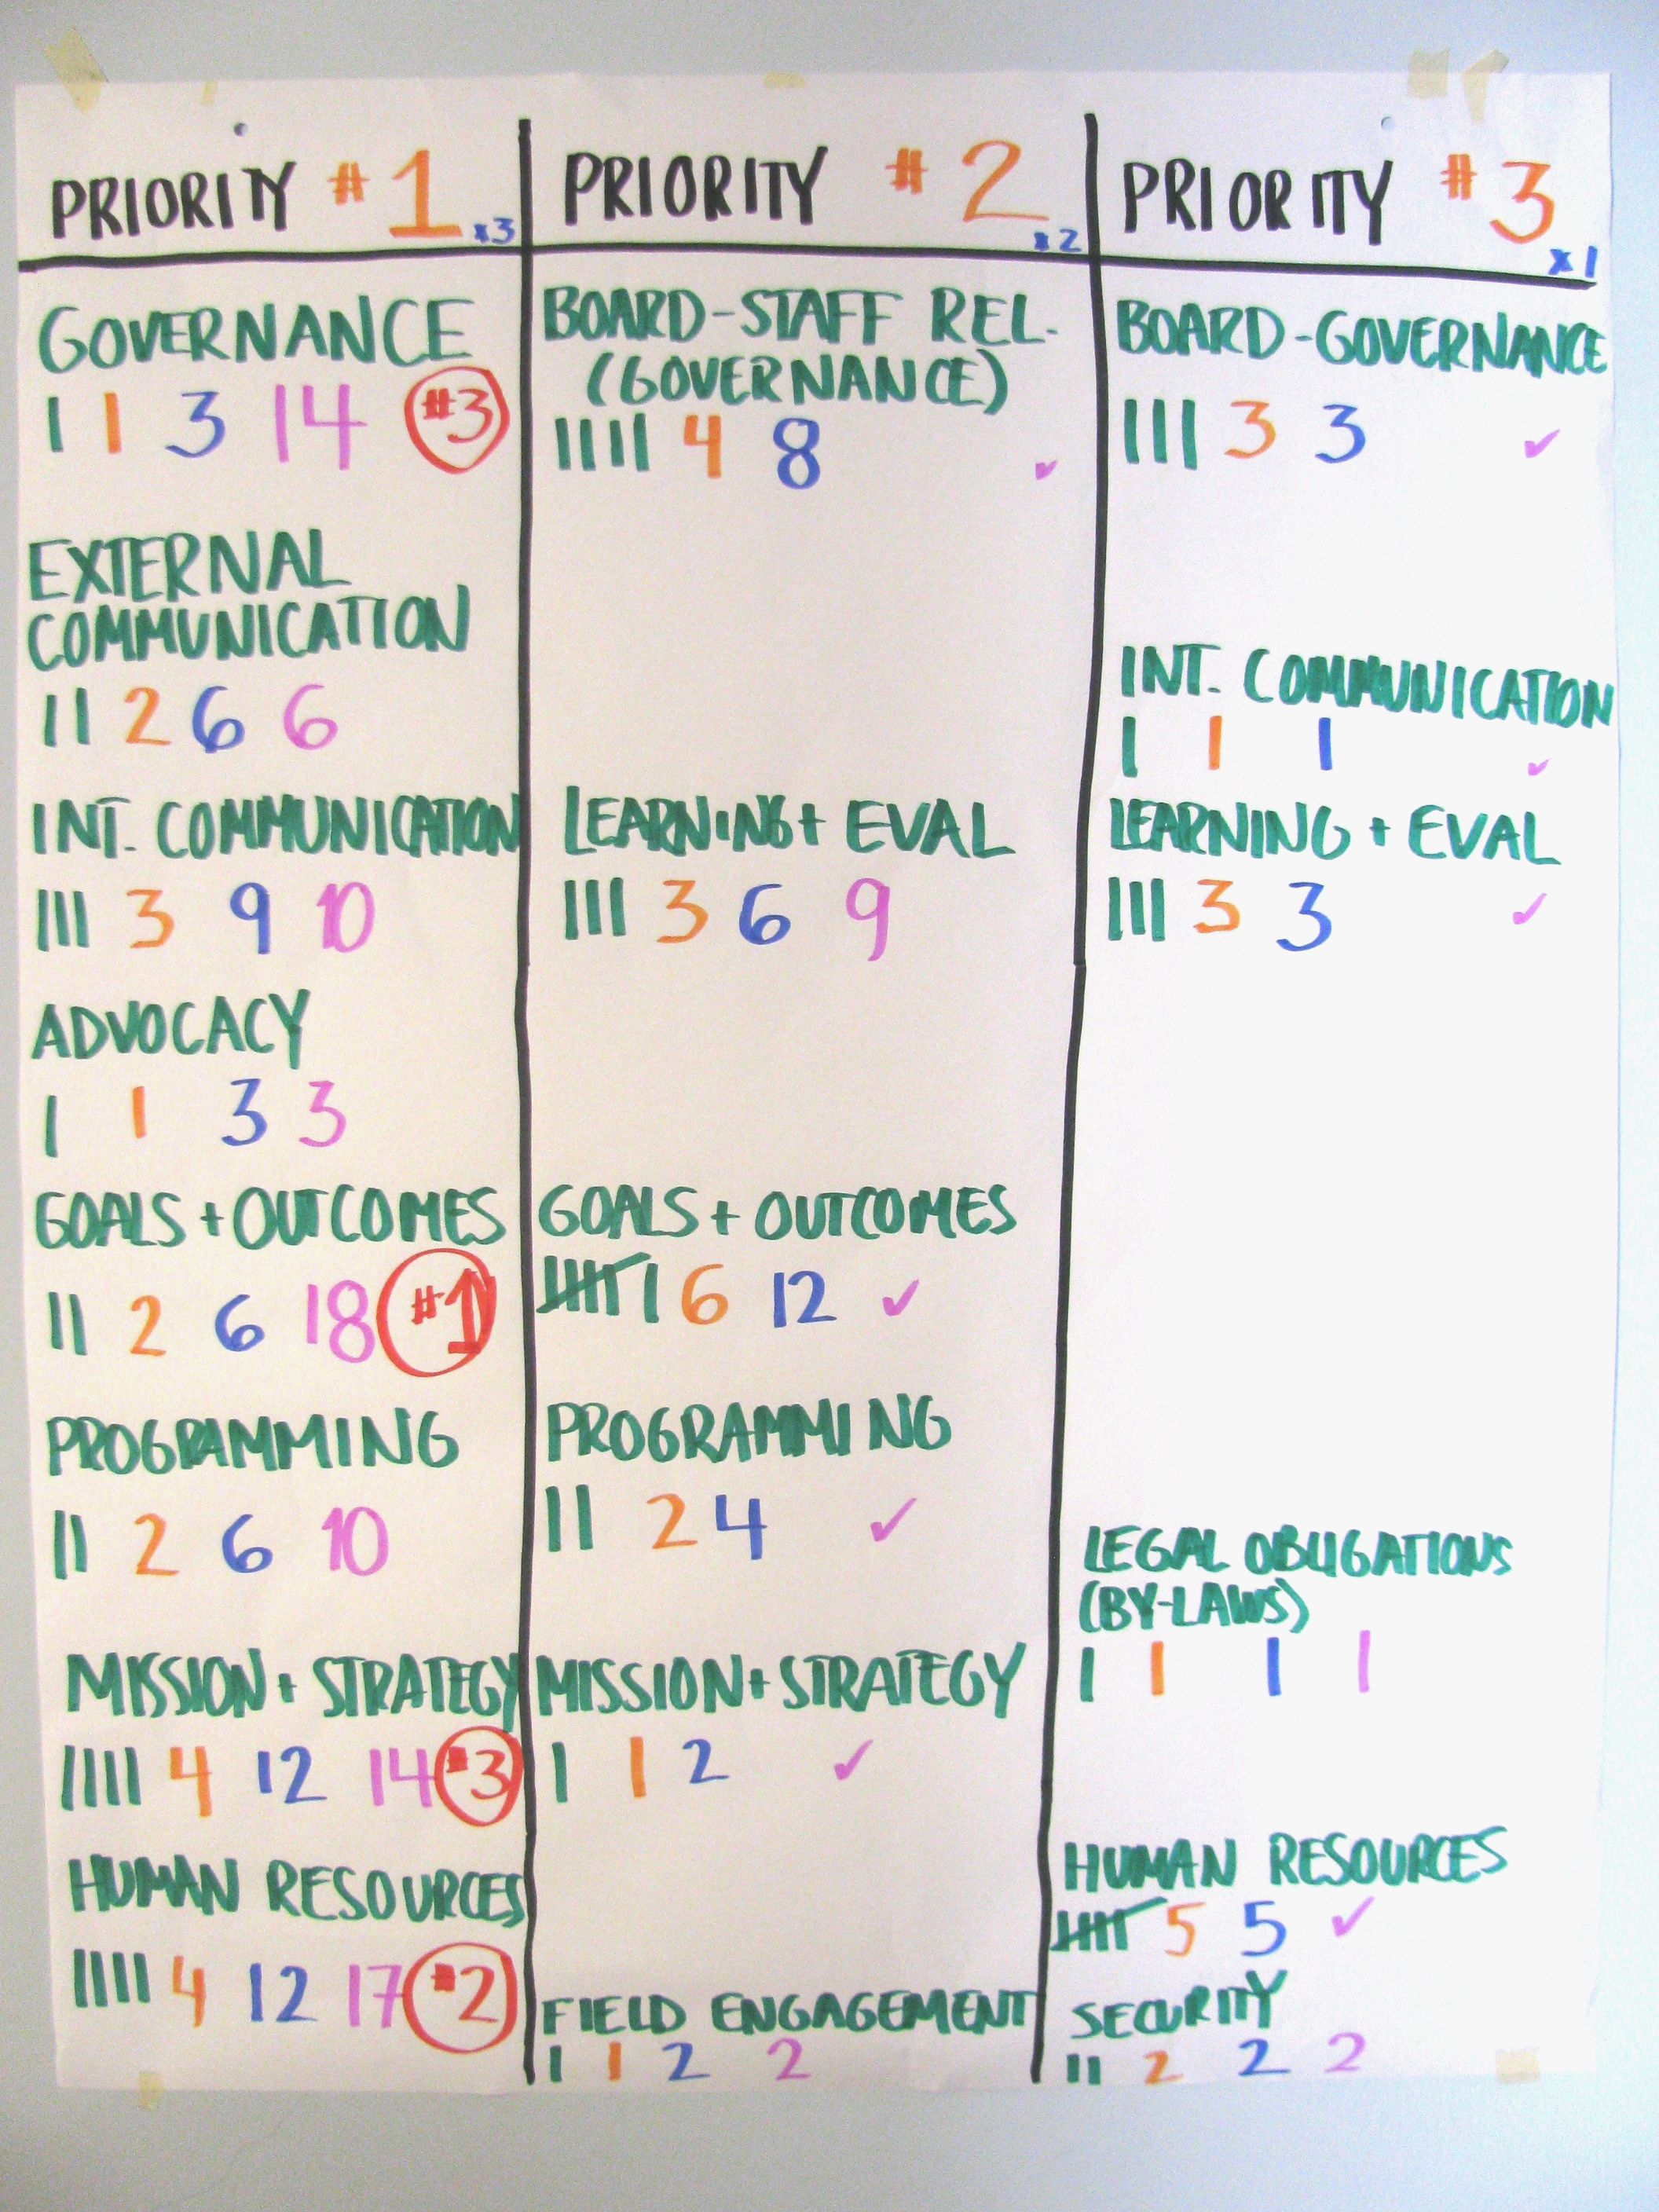 PRIORITY #1 x3
GOVERNANCE
1 3 14 #3
EXTERNAL
COMMUNICATION
2 6 6
INT. COMMUNICATION
3 9 10
ADVOCACY
1 3 3
GOALS + OUTCOMES
2 6 18 #1
PROGRAMMING
2 6 10
MISSION + STRATEGY
4 12 14 #3
HUMAN RESOURCES
4 12 17 #2
PRIORITY #2 x2
BOARD-STAFF REL.
(GOVERNANCE)
4 8 ✓
LEARNING + EVAL
3 6 9
GOALS + OUTCOMES
6 12 ✓
PROGRAMMING
2 4 ✓
MISSION + STRATEGY
1 2 ✓
FIELD ENGAGEMENT
1 2 2
PRIORITY #3 x1
BOARD-GOVERNANCE
3 3 ✓
INT. COMMUNICATION
1 1 ✓
LEARNING + EVAL
3 3 ✓
LEGAL OBLIGATIONS
(BY-LAWS)
1 1 1
HUMAN RESOURCES
5 5 ✓
SECURITY
2 2 2